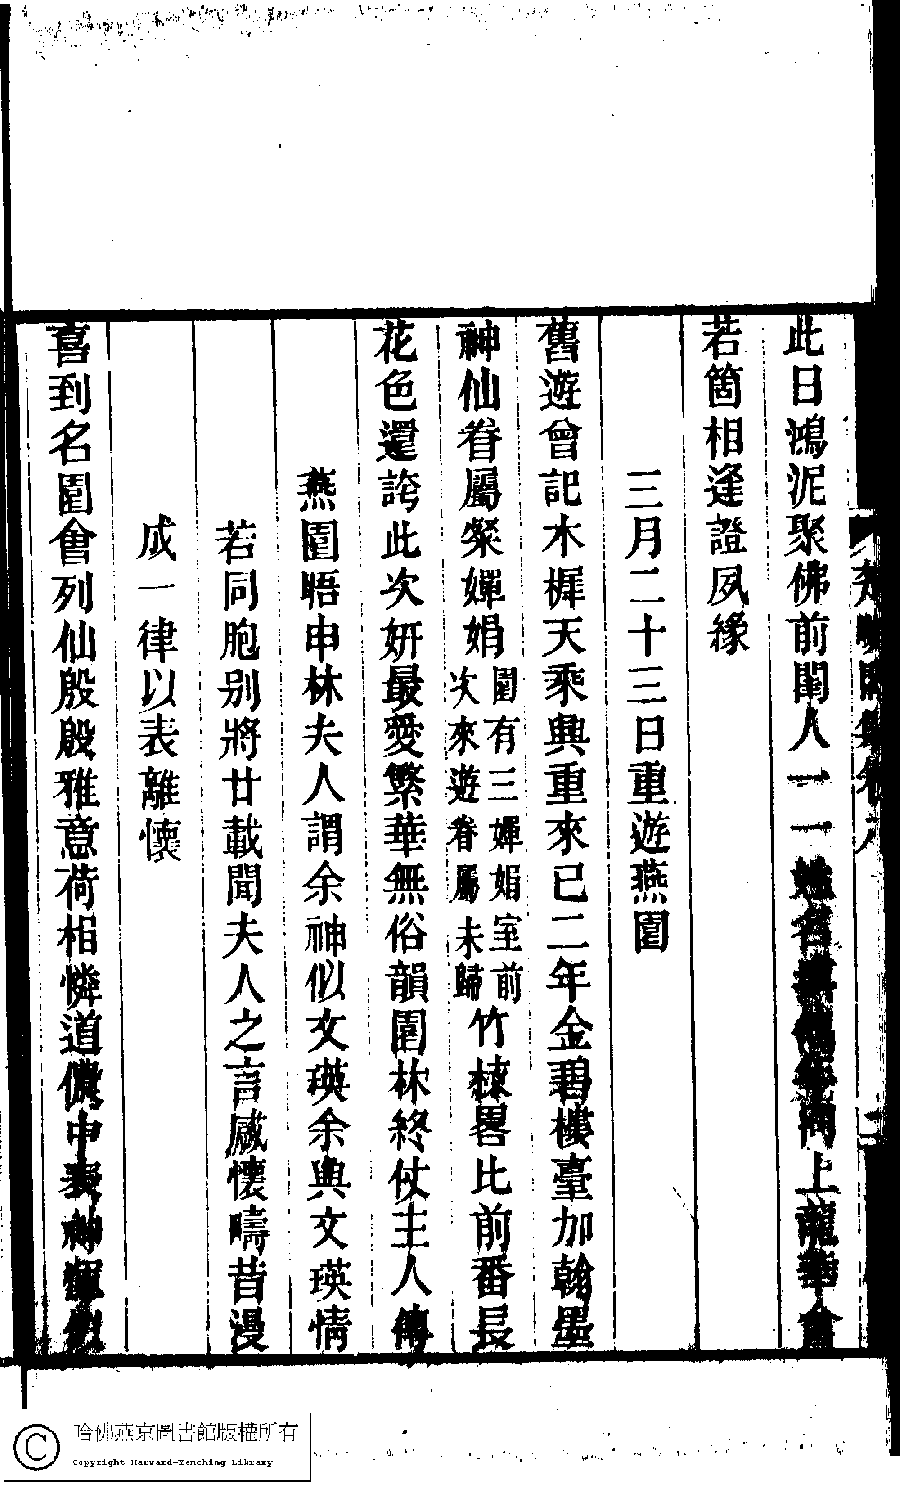 此日鴻泥聚佛前閨人一一姓名 上龍華會
若箇相逢證夙緣
三月二十三日重遊燕園
舊遊曾記木樨天乘興重來已二年金碧樓臺加翰墨
神仙眷屬粲嬋娟園有三嬋娟室前次來遊眷屬未歸竹棣畧比前番長
花色還誇此次妍最愛繁華無俗韻園林終仗主人傳
燕園晤申林夫人謂余神似文瑛余與文瑛情
若同胞别將廿載聞夫人之言感懷疇昔漫
成一律以表離懷
喜到名園會列仙殷殷雅意荷相憐道儂中表神
哈佛燕京圖書館版權所有
Copyright Harvard-Yenching Library